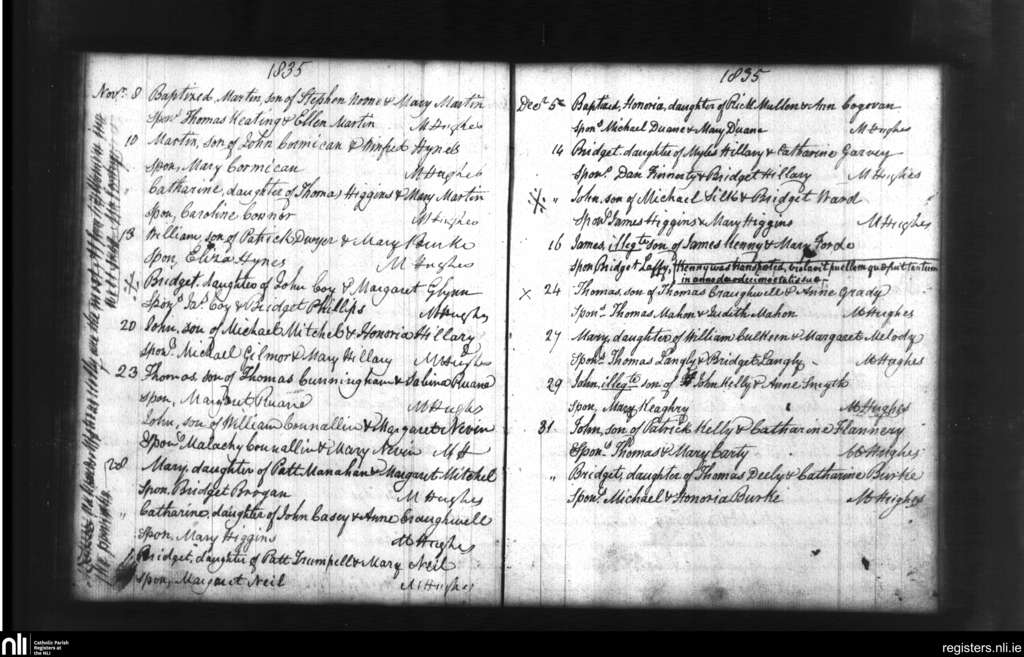 1835
Novr. 8 Baptized, Martin, son of Stephen Noone & Mary Martin
Sponr Thomas Keating & Ellen Martin M Hughes
10 Martin, son of John Cormican & Winfred Hynes
Spon, Mary Cormican M Hughes
" Catharine, daughter of Thomas Higgins & Mary Martin
Spon, Caroline Connor M Hughes
13 William, son of Patrick Dwyer & Mary Burke
Spon, Eliza Hynes M Hughes
Bridget, daughter of John Coy & Margaret Glynn
Sponrs Jas. Coy & Bridget Phillips M Hughes
20 John, son of Michael Mitchel & Honoria Hillary
Sponrs Michael Gilmor & Mary Hillary M Hughes
23 Thomas, son of Thomas Cunningham & Sabina Ruane
Spon, Margaret Ruane M Hughs
John, son of William Counallin & Margaret Nevin
Sponrs Malachy Counallin & Mary Nevin M H
28 Mary, daughter of Patt Manahan & Margaret Mitchel
Spon, Bridget Brogan M Hughes
" Catharine, daughter of John Casey & Anne Craughwell
Spon, Mary Higgins M Hughes
Bridget, daughter of Patt Trumpell & Mary Neil
Spon, Margaret Neil M Hughes
1835
Decr 5 Baptized, Honoria, daughter of Richd Mullon & Ann Cogovan
Sponrs Michael Duane & Mary Duane M Hughes
14 Bridget, daughter of Myles Hillary & Catharine Garvey
Sponrs Dan Finnerty & Bridget Hillary M Hughes
" John, son of Michael Silk & Bridget Ward
Sponrs James Higgins & Mary Higgins M Hughes
16 James, illegte son of James Kenny & Mary Forde
Spon Bridget Laffy, Kenny was transported, violavit puellam quae fuit tantum
in anno duodecimo etatis suae
X 24 Thomas, son of Thomas Craughwell & Anne Grady
Sponrs Thomas Mahon & Judith Mahon M Hughes
27 Mary, daughter of William Culkeen & Margaret Melody
Sponrs Thomas Langly & Bridget Langly M Hughes
29 John, illegte son of John Kelly & Anne Smyth
Spon, Mary Keaghry M Hughes
31 John, son of Patrick Kelly & Catharine Flannery
Sponrs Thomas & Mary Carty M Hughes
" Bridget, daughter of Thomas Deely & Catharine Burke
Sponrs Michael & Honoria Burke M Hughes
nli
Catholic Parish
Registers at
the NLI
registers.nli.ie